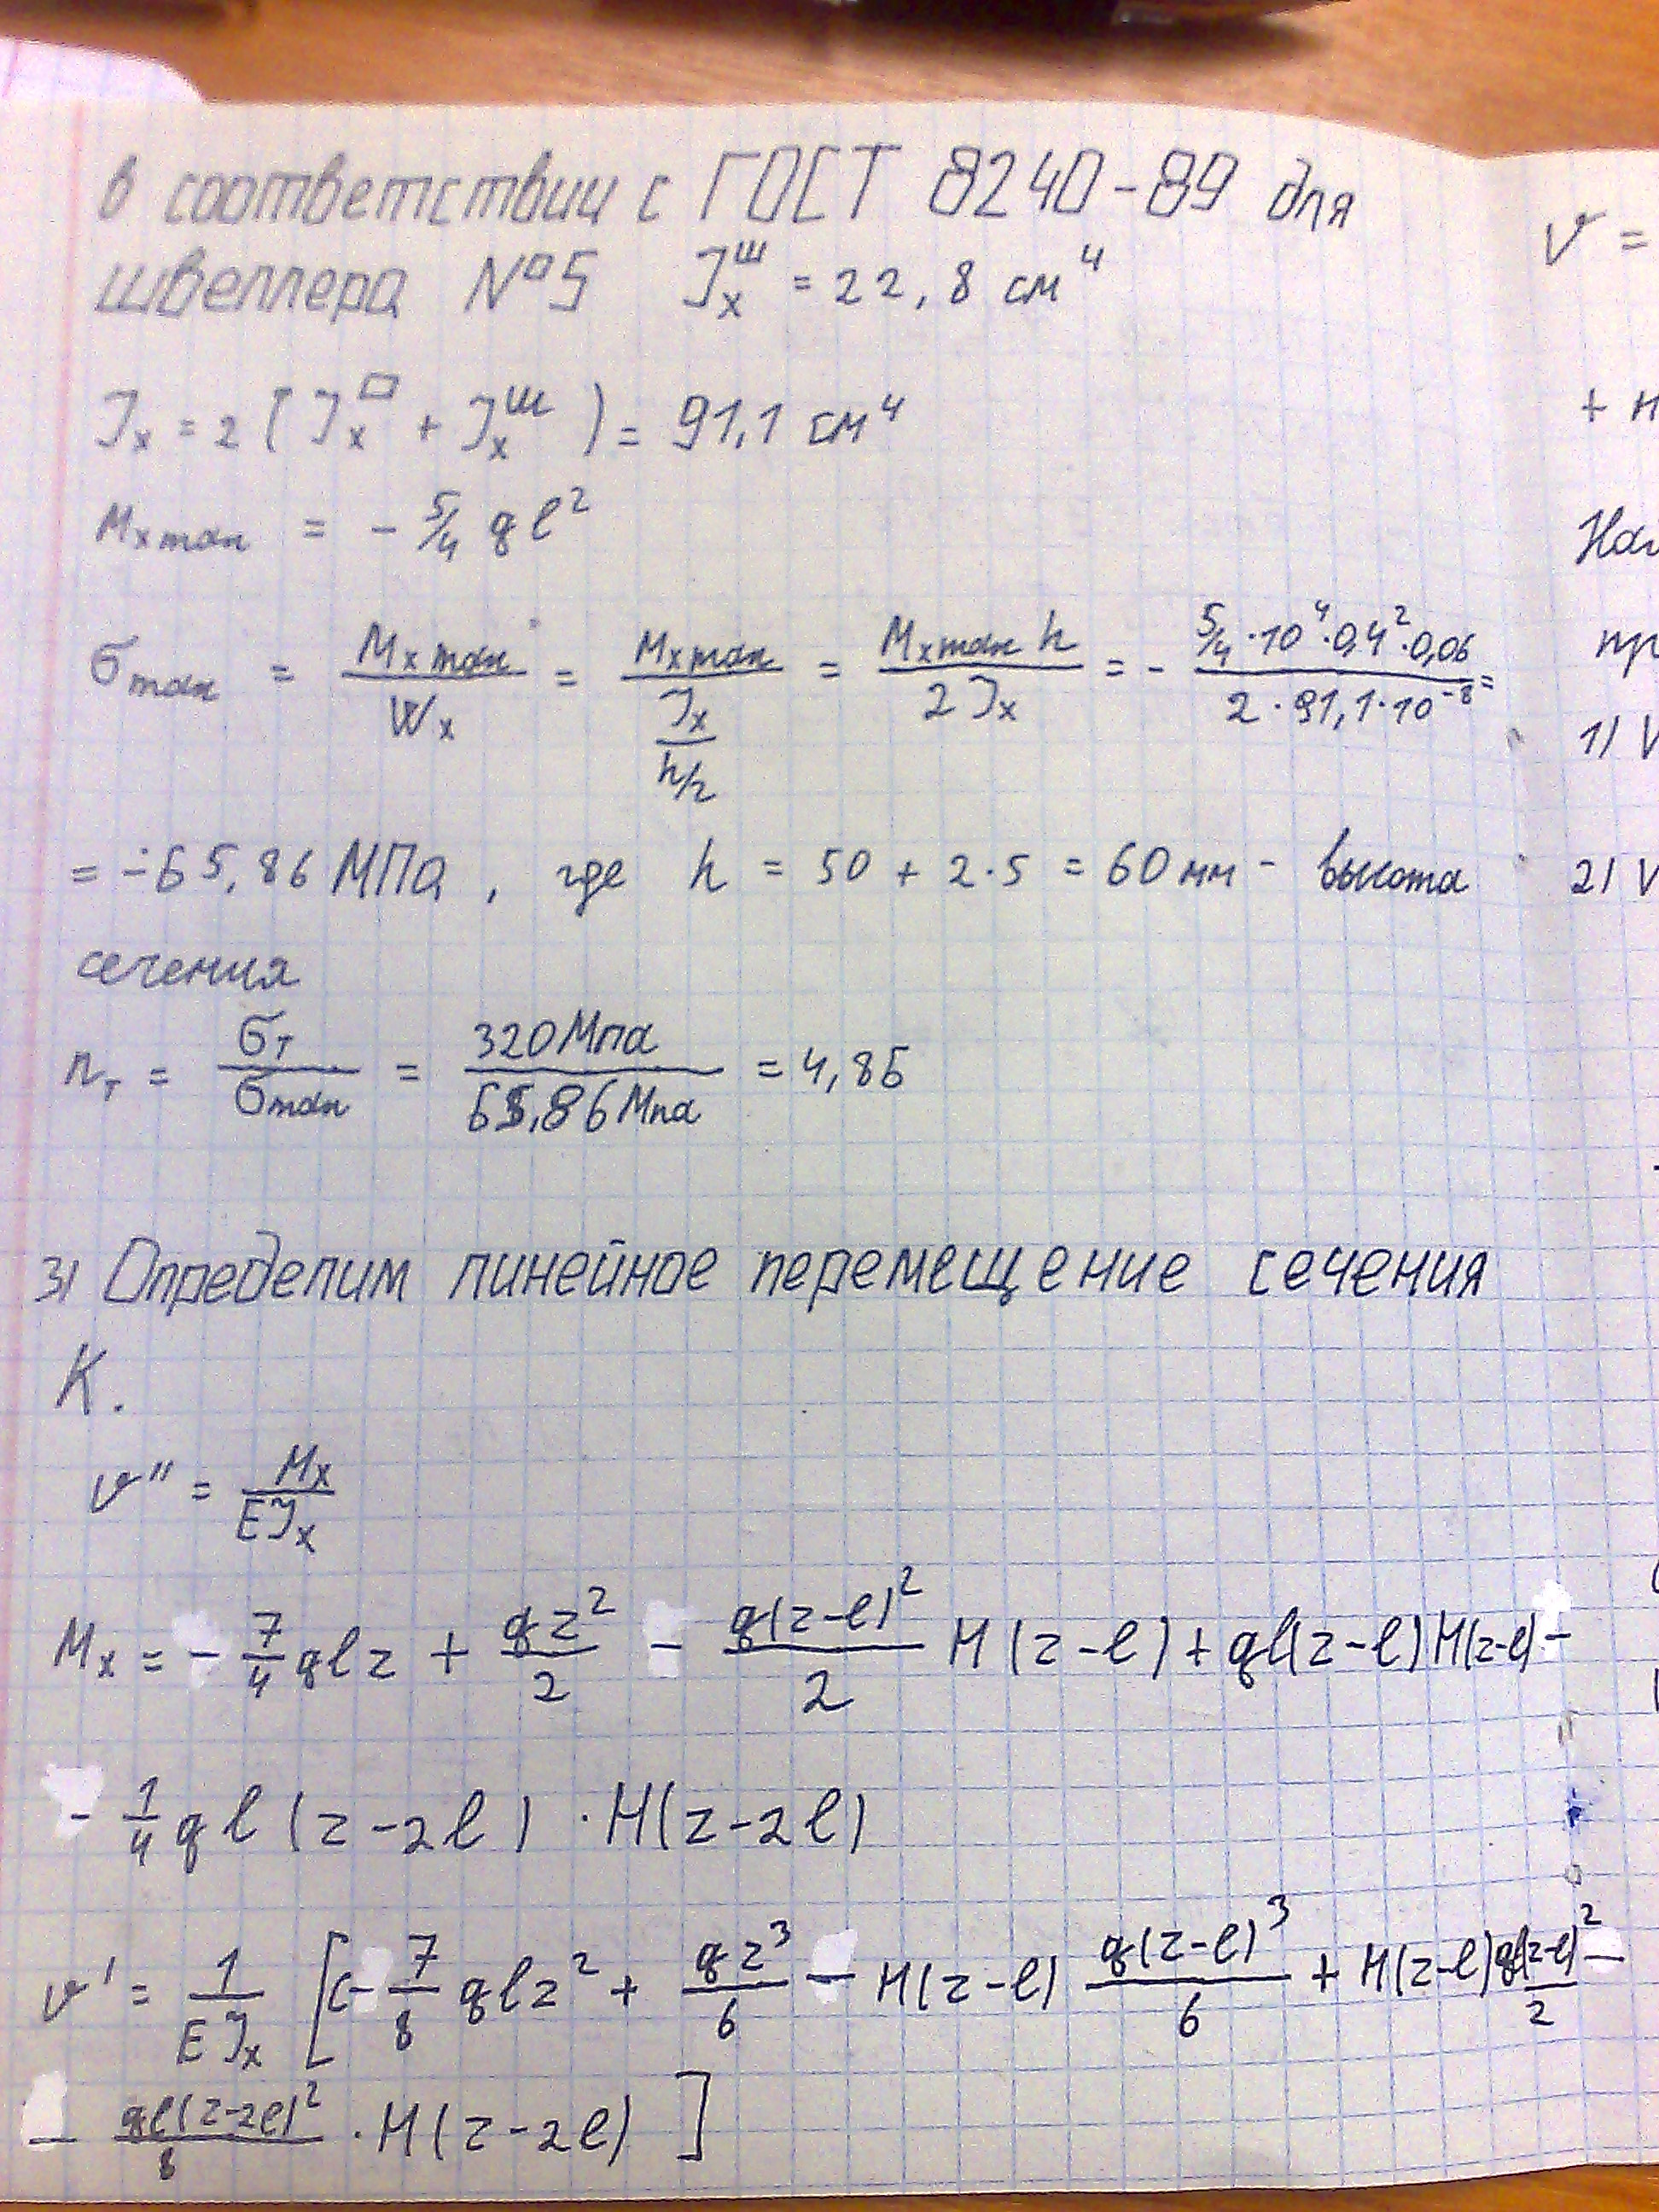 в соответствии с ГОСТ 8240-89 для
швеллера №5 J_x^ш = 22,8 см^4
J_x = 2 ( J_x^□ + J_x^ш ) = 91,1 см^4
M_x max = - 5/4 q l^2
σ_max = M_x max / W_x = M_x max / (J_x / (h/2)) = M_x max h / 2 J_x = - 5/4 · 10^4 · 0,4^2 · 0,06 / 2 · 91,1 · 10^-8 =
= -65,86 МПа , где h = 50 + 2·5 = 60 мм - высота
сечения
n_т = σ_т / σ_max = 320 Мпа / 65,86 Мпа = 4,86
3) Определим линейное перемещение сечения
К.
v'' = M_x / E J_x
M_x = - 7/4 q l z + q z^2 / 2 - q(z-l)^2 / 2 H(z-l) + ql(z-l) H(z-l) -
- 1/4 q l (z-2l) · H(z-2l)
v' = 1 / E J_x [ C - 7/8 q l z^2 + q z^3 / 6 - H(z-l) q(z-l)^3 / 6 + H(z-l) ql(z-l)^2 / 2 -
- ql(z-2l)^2 / 8 · H(z-2l) ]
v =
+ H
пр
1) V
2) V